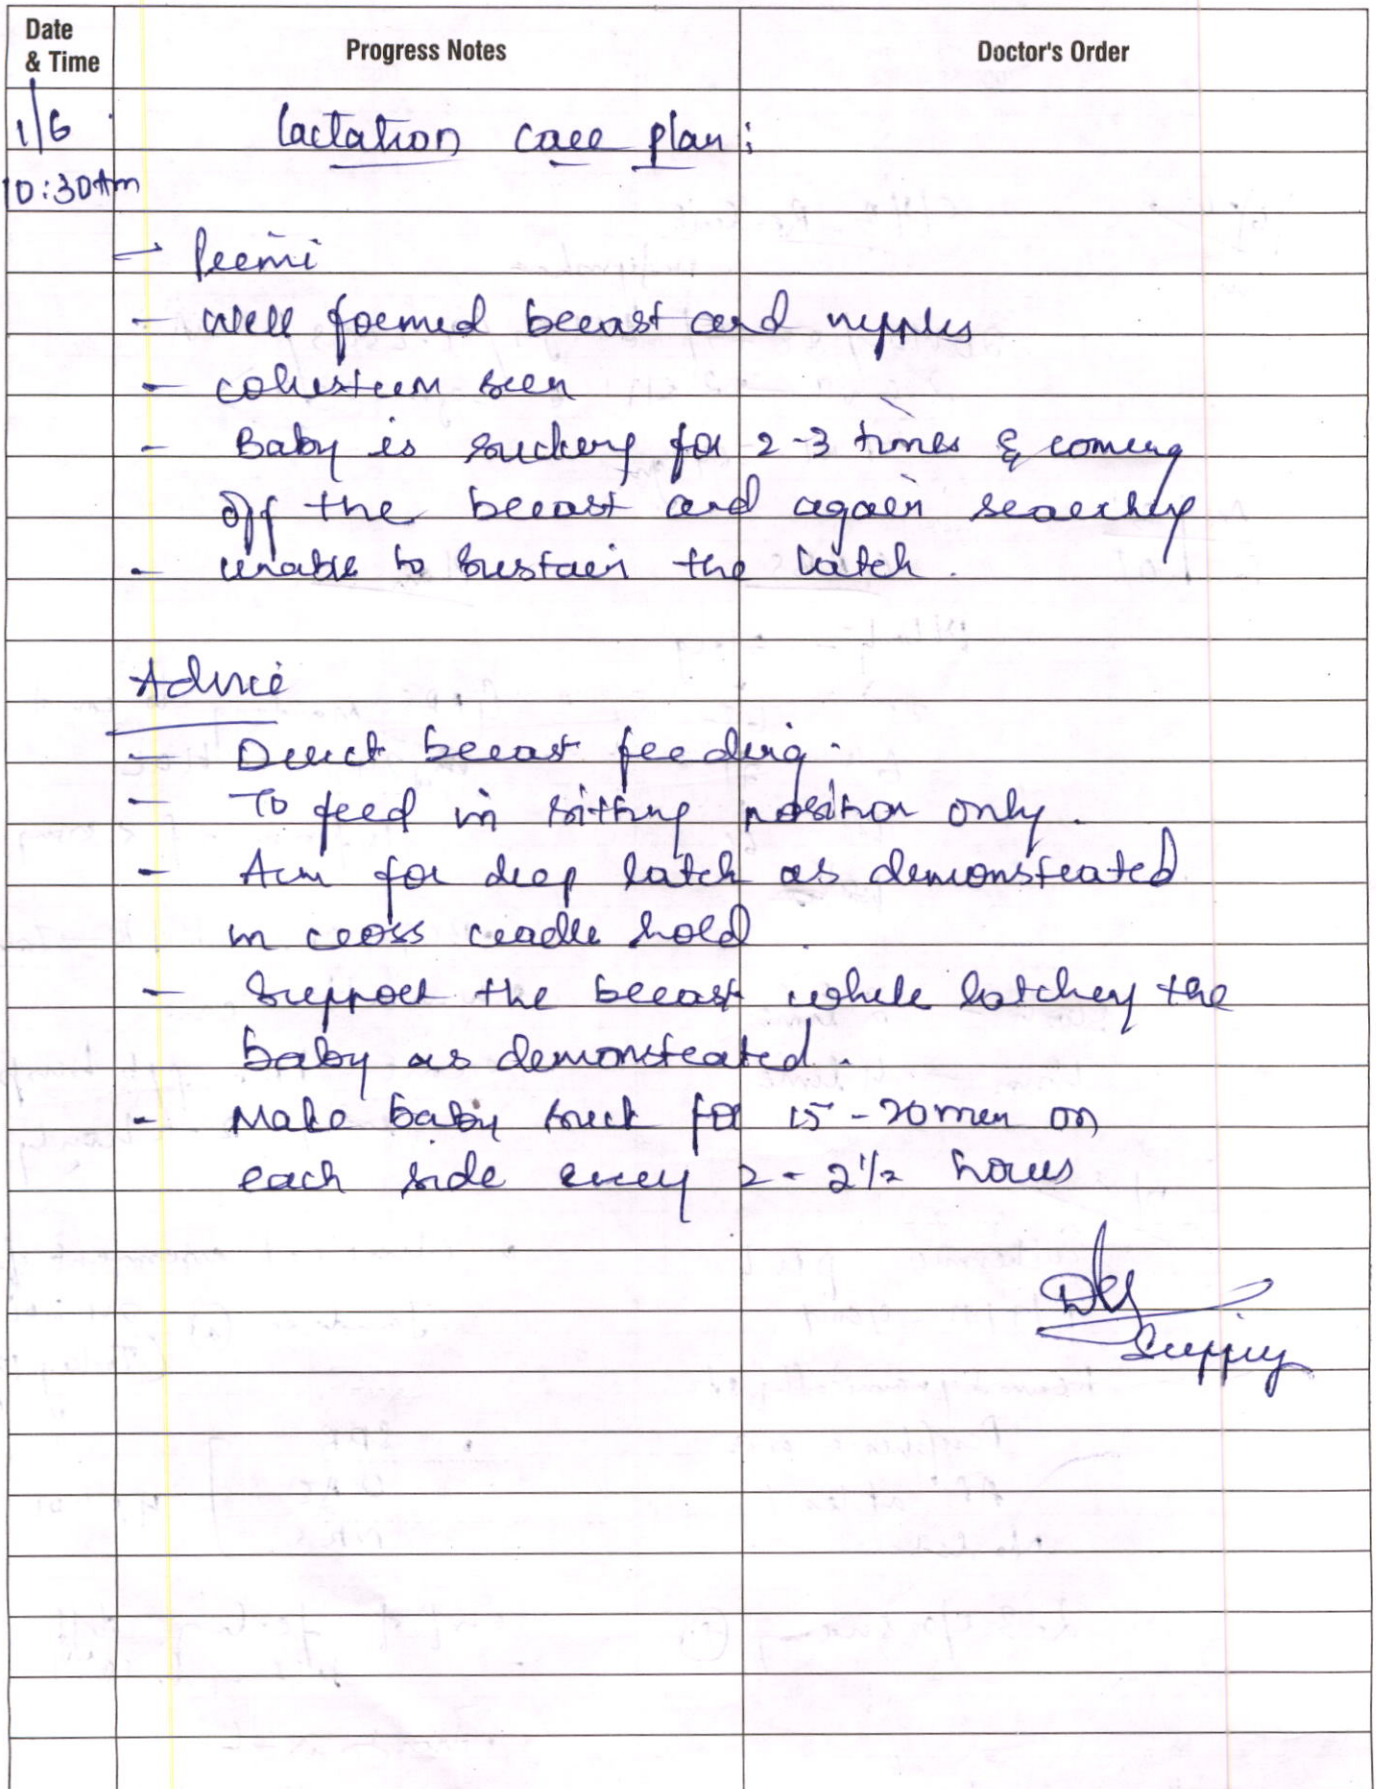 Date & Time Progress Notes Doctor's Order
1/6 Lactation care plan:
10:30 Am
- Primi
- Well formed breast and nipples
- colustrum seen
- Baby is sucking for 2-3 times & coming
off the breast and again searching
- unable to sustain the latch.
Advice
- Direct breast feeding.
- To feed in sitting position only.
- Aim for deep latch as demonstrated
in cross cradle hold.
- Support the breast while latching the
baby as demonstrated.
- Make baby suck for 15-20 min on
each side every 2 - 2 1/2 hours